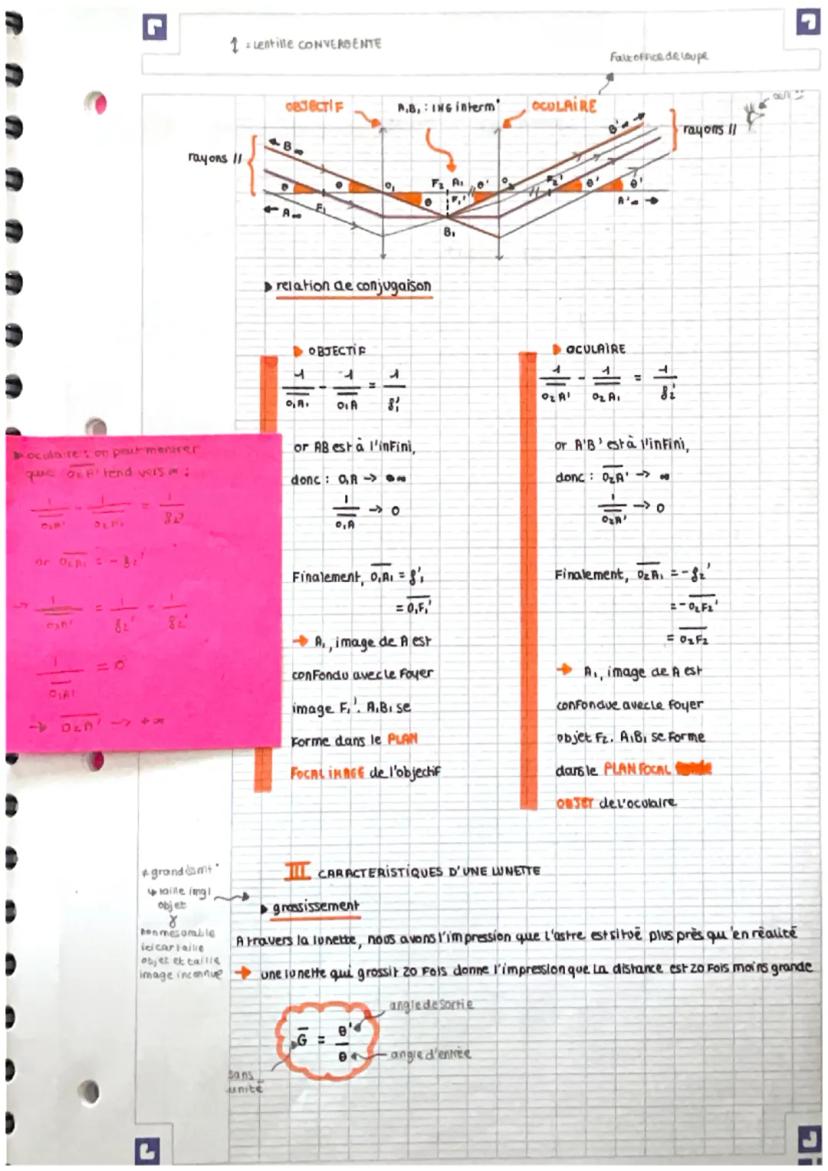 ↕ = lentille CONVERGENTE
Fait office de loupe
OBJECTIF
A₁B₁ : IMG interm^t
OCULAIRE
œil
rayons //
B∞
B'∞
rayons //
θ θ O₁ F₂ A₁ θ' O₂ F₂' θ' θ'
F₁ θ F₁'
A∞
A'∞
B₁
▸ relation de conjugaison
▸ OBJECTIF
1/O₁A₁ - 1/O₁A = 1/f₁'
or AB est à l'infini,
donc : O₁A → -∞
1/O₁A → 0
Finalement, O₁A₁ = f₁'
= O₁F₁'
→ A₁, image de A est
confondu avec le foyer
image F₁'. A₁B₁ se
forme dans le PLAN
FOCAL IMAGE de l'objectif
▸ OCULAIRE
1/O₂A' - 1/O₂A₁ = 1/f₂'
or A'B' est à l'infini,
donc : O₂A' → ∞
1/O₂A' → 0
Finalement, O₂A₁ = -f₂'
= -O₂F₂'
= O₂F₂
→ A₁, image de A est
confondue avec le foyer
objet F₂. A₁B₁ se forme
dans le PLAN FOCAL
OBJET de l'oculaire
▸ oculaire : on peut montrer
que O₂A' tend vers ∞ :
1/O₂A' - 1/O₂A₁ = 1/f₂'
or O₂A₁ = -f₂'
→ 1/O₂A' = 1/f₂' - 1/f₂'
1/O₂A' = 0
→ O₂A' → +∞
III CARACTERISTIQUES D'UNE LUNETTE
≠ grandismt
↳ taille img/
objet
non mesurable
ici car taille
objet et taille
image inconnue
▸ grossissement
A travers la lunette, nous avons l'impression que l'astre est situé plus près qu'en réalité
→ une lunette qui grossit 20 fois donne l'impression que la distance est 20 fois moins grande
G = θ'/θ
angle de sortie
angle d'entrée
sans
unité